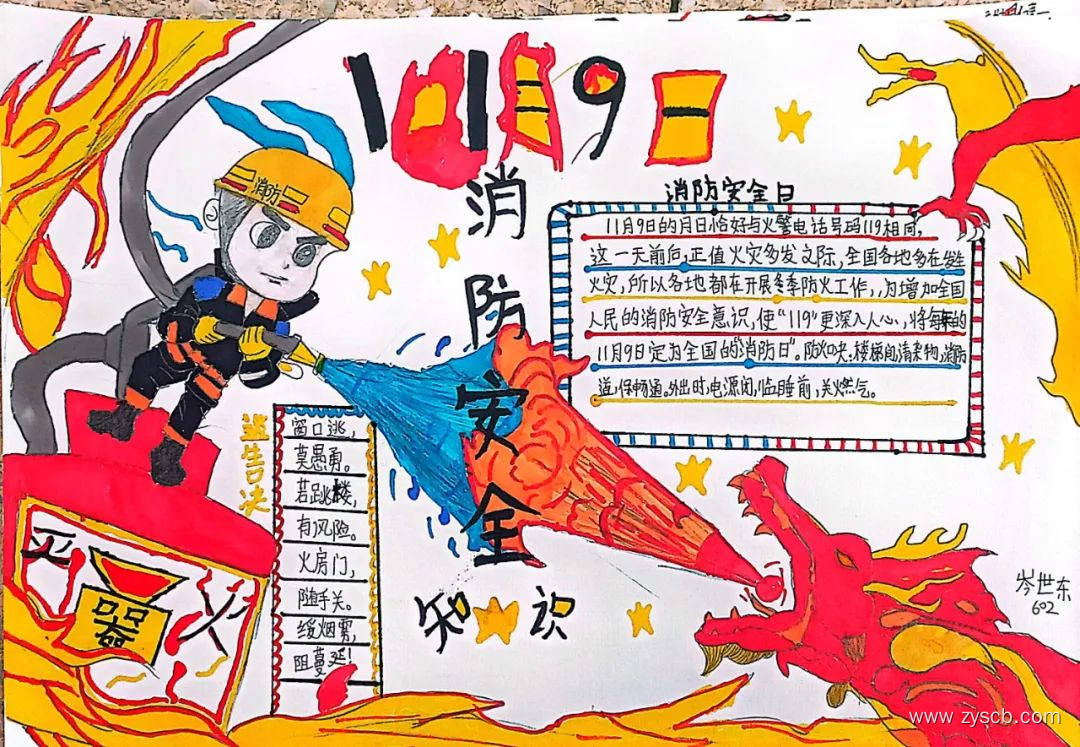 11月9日
消防安全
知识
消防
消防安全日
11月9日的月日恰好与火警电话号码119相同,
这一天前后,正值火灾多发之际,全国各地多在发生
火灾,所以各地都在开展冬季防火工作,为增加全国
人民的消防安全意识,使“119”更深入人心,将每年的
11月9日定为全国的“消防日”。防火口决:楼梯间清杂物,消防
道,保畅通。外出时,电源闭,临睡前,关燃气。
逃生口决
窗口逃,
莫愚勇。
若跳楼,
有风险。
火房门,
随手关。
缓烟雾,
阻蔓延!
灭火
器
岑世东
602
www.zyscb.com